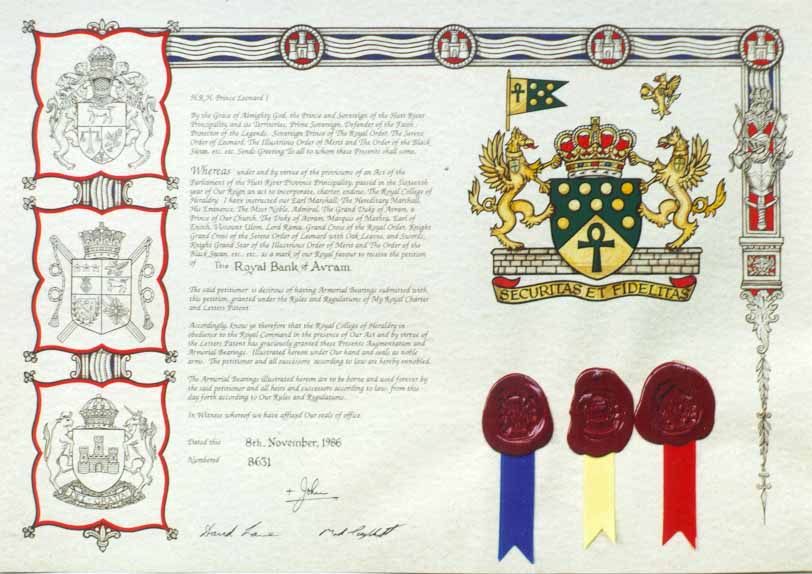 H.R.H. Prince Leonard I
By the Grace of Almighty God, the Prince and Sovereign of the Hutt River
Principality and its Territories, Prime Sovereign, Defender of the Faith,
Protector of the Legends, Sovereign Prince of The Royal Order, The Serene
Order of Leonard, The Illustrious Order of Merit and The Order of the Black
Swan, etc. etc. Sends Greeting To all to whom these Presents shall come.
Whereas under and by virtue of the provisions of an Act of the
Parliament of the Hutt River Province Principality, passed in the Sixteenth
year of Our Reign an act to incorporate, charter, endow, The Royal College of
Heraldry. I have instructed our Earl Marshall, The Hereditary Marshall,
His Eminence, The Most Noble, Admiral, The Grand Duke of Avram, a
Prince of Our Church, The Duke of Avram, Marquis of Mathra, Earl of
Enoch, Viscount Ulom, Lord Rama, Grand Cross of the Royal Order, Knight
Grand Cross of the Serene Order of Leonard with Oak Leaves, and Swords,
Knight Grand Star of the Illustrious Order of Merit and The Order of the
Black Swan, etc., etc. as a mark of our Royal favour to receive the petition
of The Royal Bank of Avram
The said petitioner is desirous of having Armorial Bearings submitted with
this petition, granted under the Rules and Regulations of My Royal Charter
and Letters Patent.
Accordingly, know ye therefore that the Royal College of Heraldry in
obedience to the Royal Command in the presence of Our Act and by virtue of
the Letters Patent has graciously granted these Presents Augmentation and
Armorial Bearings. Illustrated hereon under Our Hand and seals as noble
arms. The petitioner and all successors according to law are hereby ennobled.
The Armorial Bearings illustrated hereon are to be borne and used forever by
the said petitioner and all heirs and successors according to law, from this
day forth according to Our Rules and Regulations.
In Witness whereof we have affixed Our seals of office.
Dated this 8th. November, 1986
Numbered 8631
+ John
SECURITAS ET FIDELITAS